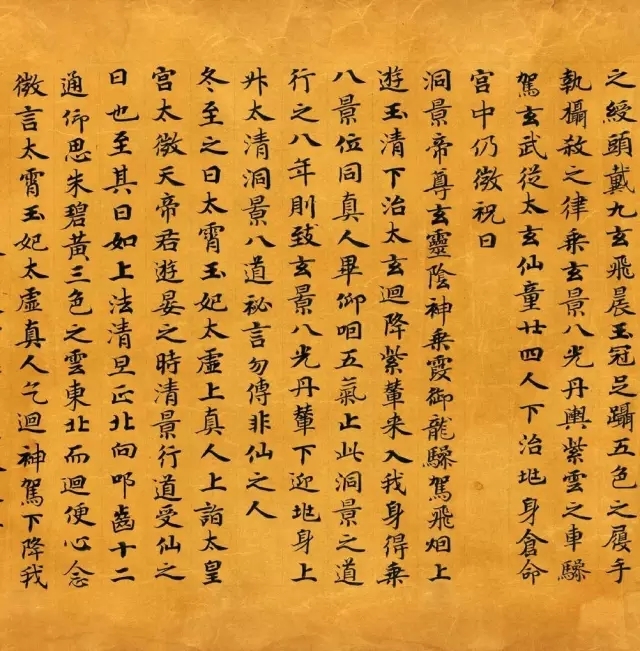 之綬頭戴九玄飛晨玉冠足躡五色之履手
執攝敘之律乗玄景八光丹輿紫雲之車驂
駕玄武從太玄仙童廿四人下治兆身倉命
宮中仍微祝曰
洞景帝尊玄靈陰神乗霞御龍驂駕飛烟上
遊玉清下治太玄迴降紫輦来入我身得乗
八景位同真人畢仰咽五氣止此洞景之道
行之八年則致玄景八光丹輦下迎兆身上
升太清洞景八道祕言勿傳非仙之人
冬至之日太霄玉妃太虛上真人上詣太皇
宮太微天帝君遊晏之時清景行道受仙之
日也至其日如上法清旦正北向叩齒十二
通仰思朱碧黃三色之雲東北而迴便心念
微言太霄玉妃太虛真人乞迴神駕下降我